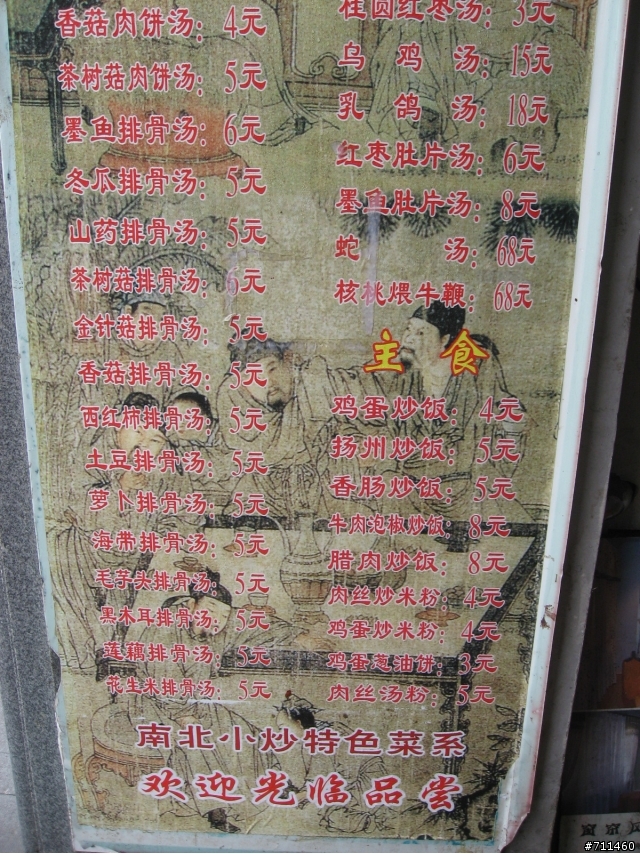 香菇肉饼汤：4元
茶树菇肉饼汤：5元
墨鱼排骨汤：6元
冬瓜排骨汤：5元
山药排骨汤：5元
茶树菇排骨汤：6元
金针菇排骨汤：5元
香菇排骨汤：5元
西红柿排骨汤：5元
土豆排骨汤：5元
萝卜排骨汤：5元
海带排骨汤：5元
毛芋头排骨汤：5元
黑木耳排骨汤：5元
莲藕排骨汤：5元
花生米排骨汤：5元
桂圆红枣汤：3元
乌鸡汤：15元
乳鸽汤：18元
红枣肚片汤：6元
墨鱼肚片汤：8元
蛇汤：68元
核桃煨牛鞭：68元
主食
鸡蛋炒饭：4元
扬州炒饭：5元
香肠炒饭：5元
牛肉泡椒炒饭：8元
腊肉炒饭：8元
肉丝炒米粉：4元
鸡蛋炒米粉：4元
鸡蛋葱油饼：3元
肉丝汤粉：5元
南北小炒特色菜系
欢迎光临品尝
#711460